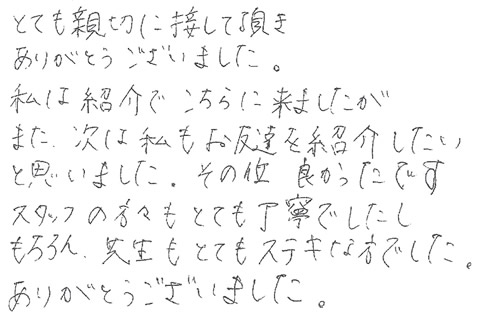 とても親切に接して頂き
ありがとうございました。
私は紹介でこちらに来ましたが
また、次は私もお友達を紹介したい
と思いました。その位 良かったです
スタッフの方々もとても丁寧でしたし
もちろん、先生もとてもステキな方でした。
ありがとうございました。